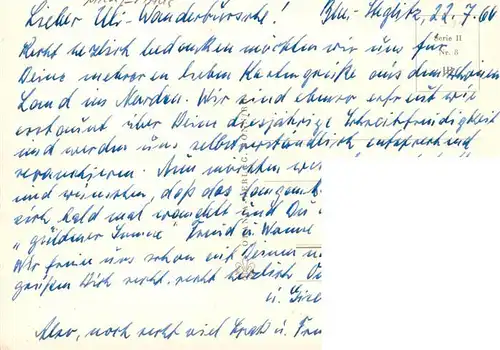 Lieber Uli-Wanderbursche! Bln.-Steglitz, 22.7.66
Recht herzlich bedanken möchten wir uns für
Deine mehreren lieben Kartengrüße aus dem schönen
Land im Norden. Wir sind ebenso erfreut wie
erstaunt über Deine diesjährige Schreibfreudigkeit
und werden uns selbstverständlich entsprechend
revanchieren. Nun möchten
und wünschten, daß das
sich bald mal und Du
"güldner Sonne" Freud u. Wonne
Wir freuen uns schon auf Deinen
grüßen Dich recht, recht herzlichst
u.
Also, noch recht viel Spaß u.
Serie II
Nr. 8